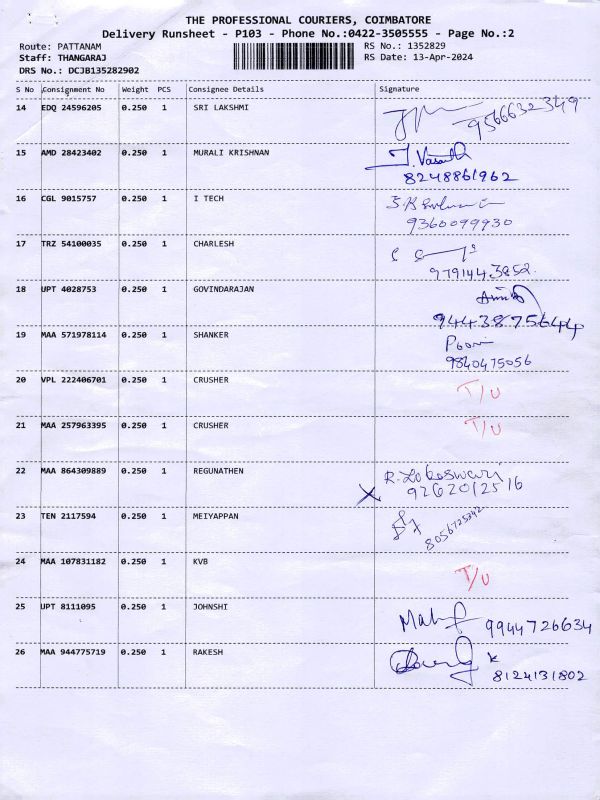 THE PROFESSIONAL COURIERS, COIMBATORE
Delivery Runsheet - P103 - Phone No.:0422-3505555 - Page No.:2
Route: PATTANAM RS No.: 1352829
Staff: THANGARAJ RS Date: 13-Apr-2024
DRS No.: DCJB135282902
S No Consignment No Weight PCS Consignee Details Signature
14 EDQ 24596205 0.250 1 SRI LAKSHMI 9566632349
15 AMD 28423402 0.250 1 MURALI KRISHNAN
8248861962
16 CGL 9015757 0.250 1 I TECH
9360099930
17 TRZ 54100035 0.250 1 CHARLESH
9791443852
18 UPT 4028753 0.250 1 GOVINDARAJAN
9443875644
19 MAA 571978114 0.250 1 SHANKER
9840475056
20 VPL 222406701 0.250 1 CRUSHER T/U
21 MAA 257963395 0.250 1 CRUSHER T/U
22 MAA 864309889 0.250 1 REGUNATHEN R. Lokeswari
9262012516
23 TEN 2117594 0.250 1 MEIYAPPAN
8056725342
24 MAA 107831182 0.250 1 KVB T/U
25 UPT 8111095 0.250 1 JOHNSHI 9944726634
26 MAA 944775719 0.250 1 RAKESH
8124131802